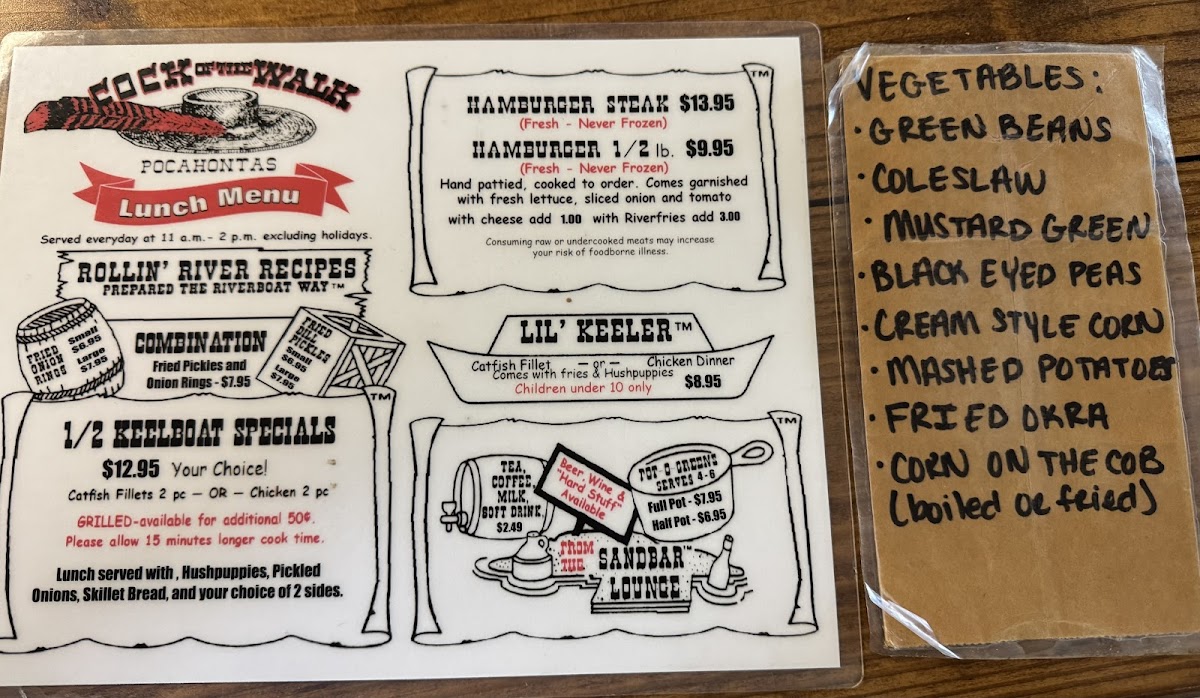 COCK OF THE WALK
POCAHONTAS
Lunch Menu
Served everyday at 11 a.m.- 2 p.m. excluding holidays.
ROLLIN' RIVER RECIPES
PREPARED THE RIVERBOAT WAY™
FRIED
ONION
RINGS
Small
$6.95
Large
$7.95
COMBINATION
Fried Pickles and
Onion Rings - $7.95
FRIED
DILL
PICKLES
Small
$6.95
Large
$7.95
TM
1/2 KEELBOAT SPECIALS
$12.95 Your Choice!
Catfish Fillets 2 pc — OR — Chicken 2 pc
GRILLED-available for additional 50¢.
Please allow 15 minutes longer cook time.
Lunch served with , Hushpuppies, Pickled
Onions, Skillet Bread, and your choice of 2 sides.
TM
HAMBURGER STEAK $13.95
(Fresh - Never Frozen)
HAMBURGER 1/2 lb. $9.95
(Fresh - Never Frozen)
Hand pattied, cooked to order. Comes garnished
with fresh lettuce, sliced onion and tomato
with cheese add 1.00 with Riverfries add 3.00
Consuming raw or undercooked meats may increase
your risk of foodborne illness.
LIL' KEELER™
Catfish Fillet — or — Chicken Dinner
Comes with fries & Hushpuppies $8.95
Children under 10 only
TM
TEA,
COFFEE,
MILK,
SOFT DRINK
$2.49
Beer, Wine &
"Hard Stuff"
Available
POT-O-GREENS
SERVES 4-6
Full Pot - $7.95
Half Pot - $6.95
FROM
THE
SANDBAR™
LOUNGE
VEGETABLES:
• GREEN BEANS
• COLESLAW
• MUSTARD GREEN
• BLACK EYED PEAS
• CREAM STYLE CORN
• MASHED POTATOES
• FRIED OKRA
• CORN ON THE COB
(boiled or fried)